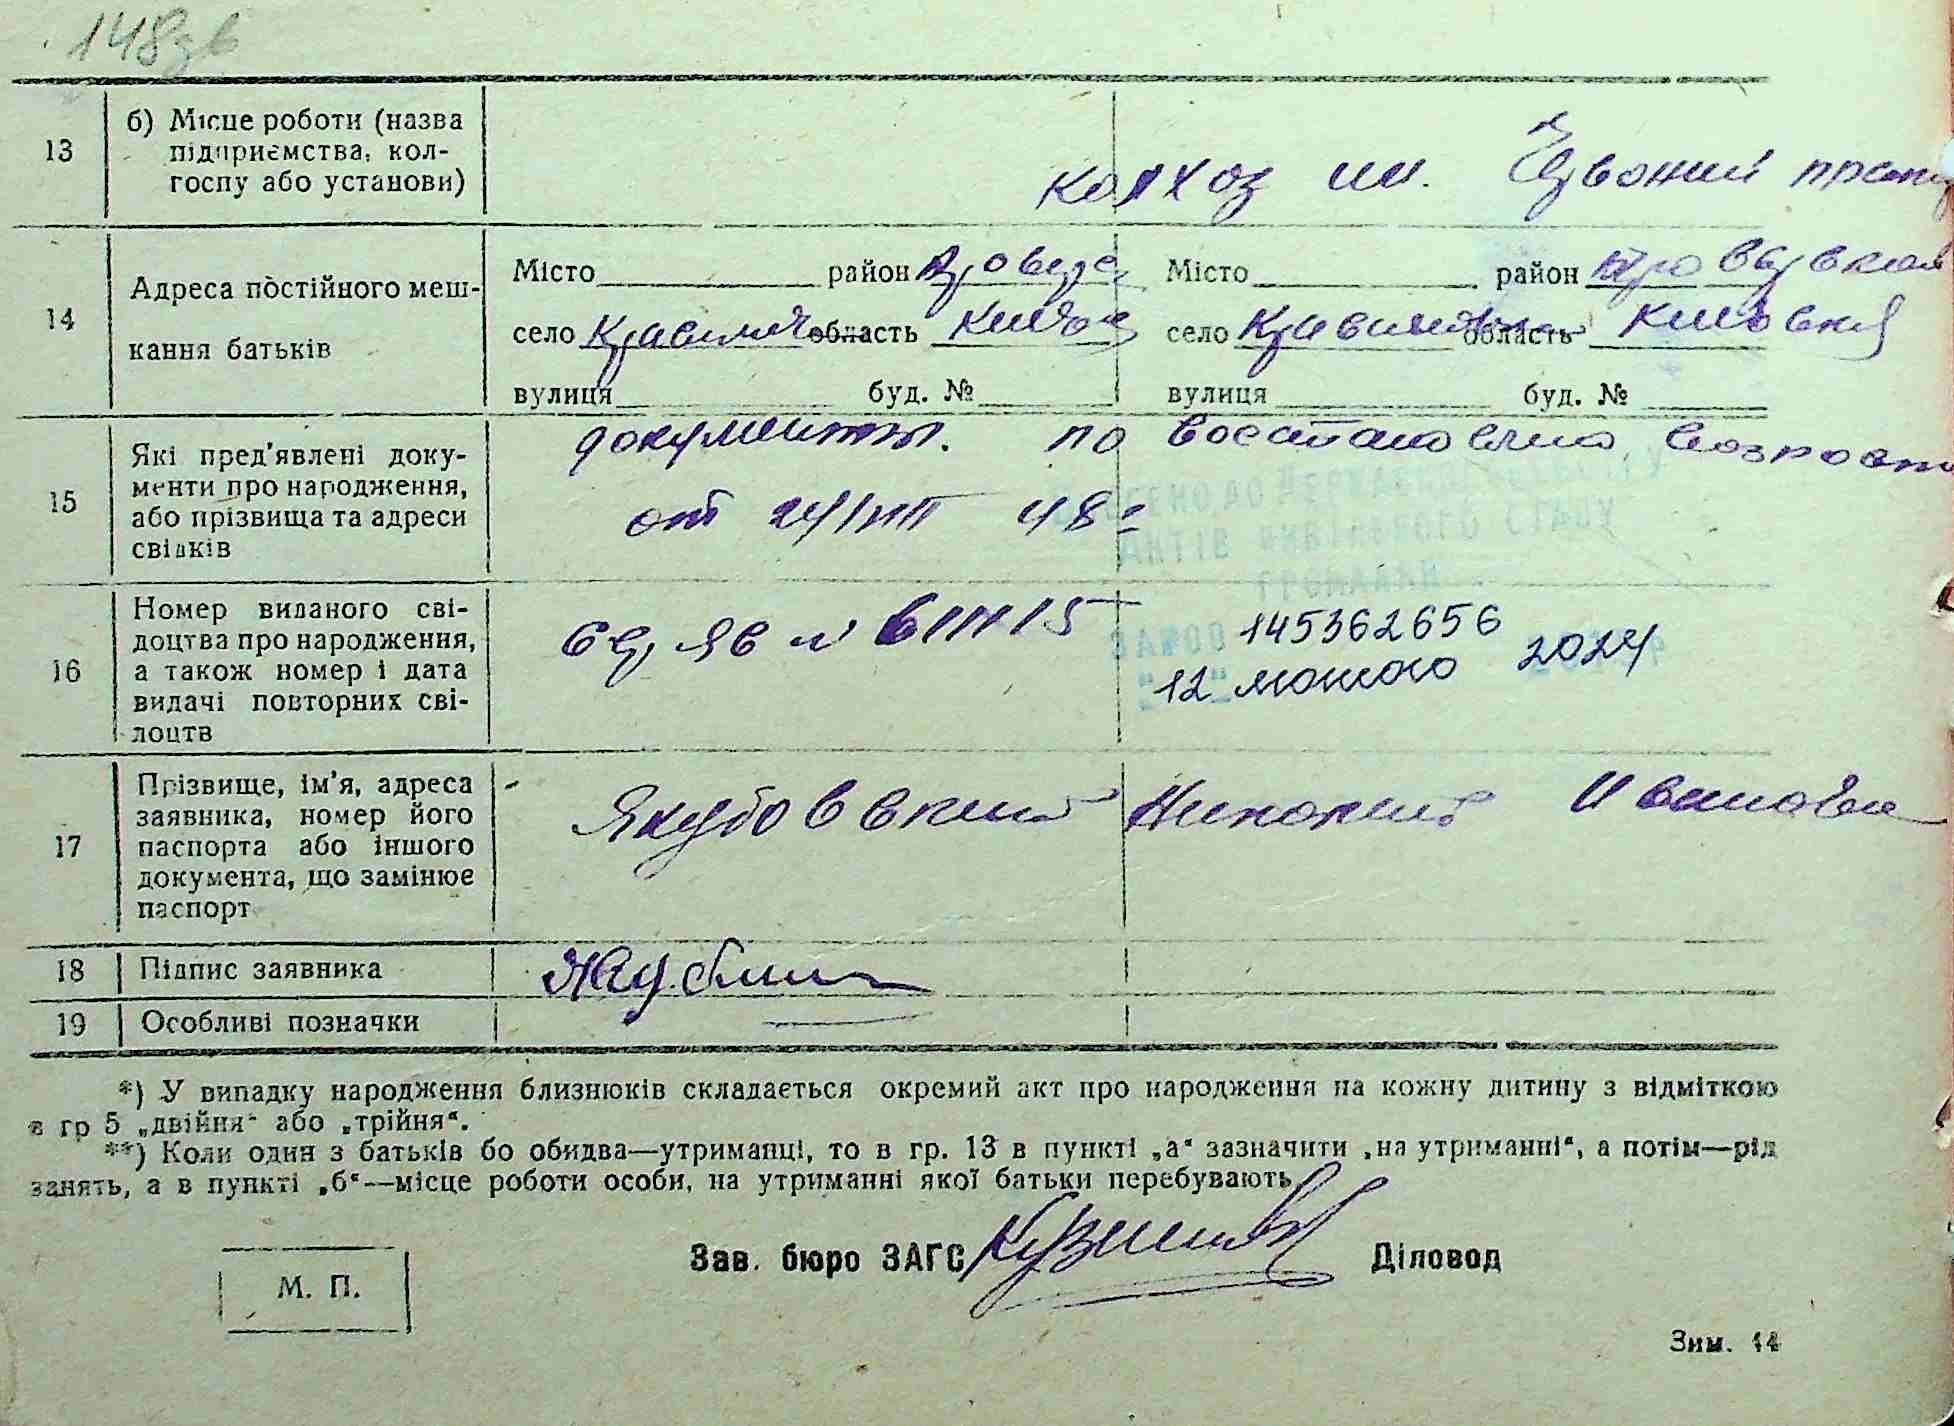 148зв
13
б) Місце роботи (назва
підприємства, кол-
госпу або установи)
колхоз им. Червоний прапор
14
Адреса постійного меш-
кання батьків
Місто район
село область
вулиця буд. №
Місто район
село область Киевская
вулиця буд. №
15
Які пред'явлені доку-
менти про народження,
або прізвища та адреси
свідків
документы. по
от 24/VIII 48г
АКТІВ ЦИВІЛЬНОГО СТАНУ
ГРОМАДЯН
16
Номер виданого сві-
доцтва про народження,
а також номер і дата
видачі повторних сві-
доцтв
145362656
12 лютого 2024
17
Прізвище, ім'я, адреса
заявника, номер його
паспорта або іншого
документа, що замінює
паспорт
Якубовский Николай Иванович
18 Підпис заявника
19 Особливі позначки
*) У випадку народження близнюків складається окремий акт про народження на кожну дитину з відміткою
в гр 5 „двійня“ або „трійня“.
**) Коли один з батьків бо обидва—утриманці, то в гр. 13 в пункті „а“ зазначити „на утриманні“, а потім—рід
занять, а в пункті „б“—місце роботи особи, на утриманні якої батьки перебувають.
Зав. бюро ЗАГС Діловод
М. П.
Зим. 44